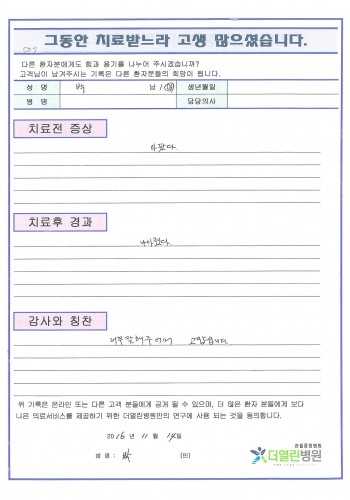 그동안 치료받느라 고생 많으셨습니다.
다른 환자분에게도 힘과 용기를 나누어 주시겠습니까?
고객님이 남겨주시는 기록은 다른 환자분들의 희망이 됩니다.
성 명 박 남 / 여 생년월일
병 명 담당의사
치료전 증상
아팠다.
치료후 경과
나아졌다.
감사와 칭찬
너무 잘해주어서 고맙습니다
위 기록은 온라인 또는 다른 고객 분들에게 공개 될 수 있으며, 더 많은 환자 분들에게 보다
나은 의료서비스를 제공하기 위한 더열린병원만의 연구에 사용 되는 것을 동의합니다.
2016 년 11 월 14일
성 명 : 박 (인)
관절중점병원
더열린병원